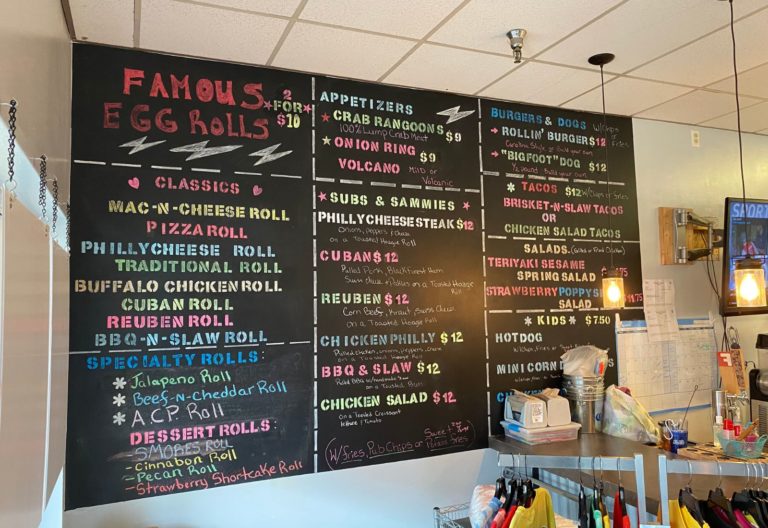 FAMOUS
EGG ROLLS
2
FOR
$10
CLASSICS
MAC-N-CHEESE ROLL
PIZZA ROLL
PHILLYCHEESE ROLL
TRADITIONAL ROLL
BUFFALO CHICKEN ROLL
CUBAN ROLL
REUBEN ROLL
BBQ-N-SLAW ROLL
SPECIALTY ROLLS:
Jalapeno Roll
Beef-n-cheddar Roll
A.C.P Roll
DESSERT ROLLS:
SMORES ROLL
-Cinnabon Roll
-Pecan Roll
-Strawberry Shortcake Roll
APPETIZERS
CRAB RANGOONS $9
100% Lump Crab Meat
ONION RING $9
VOLCANO MILD or
Volcanic
SUBS & SAMMIES
PHILLYCHEESESTEAK $12
onions, peppers, cheese
on a Toasted Hoagie Roll
CUBAN $12
Pulled Pork, Blackforest Ham
Swiss cheese Pickles on a Toasted Hoagie
Roll
REUBEN $12
Corn Beef, Kraut, Swiss Cheese
on a Toasted Hoagie Roll
CHICKEN PHILLY $12
Pulled chicken, onions, peppers, cheese
on a Toasted Hoagie Roll
BBQ & SLAW $12
on a Toasted Bun
CHICKEN SALAD $12
on a Toasted Croissant
lettuce / Tomato
W/fries, Pub Chips or Sweet
Potato fries
BURGERS & DOGS W/Chips
or Fries
ROLLIN' BURGER $12
Carolina Style or Build your own
"BIGFOOT" DOG $12
1/2 pound Build your own
TACOS $12 W/Chips or Fries
BRISKET-N-SLAW TACOS
OR
CHICKEN SALAD TACOS
SALADS (Grilled or Fried Chicken)
TERIYAKI SESAME
SPRING SALAD
STRAWBERRY POPPYSEED
SALAD $11.75
KIDS $7.50
HOTDOG
W/Chips, Fries or
MINI CORN
SPORT